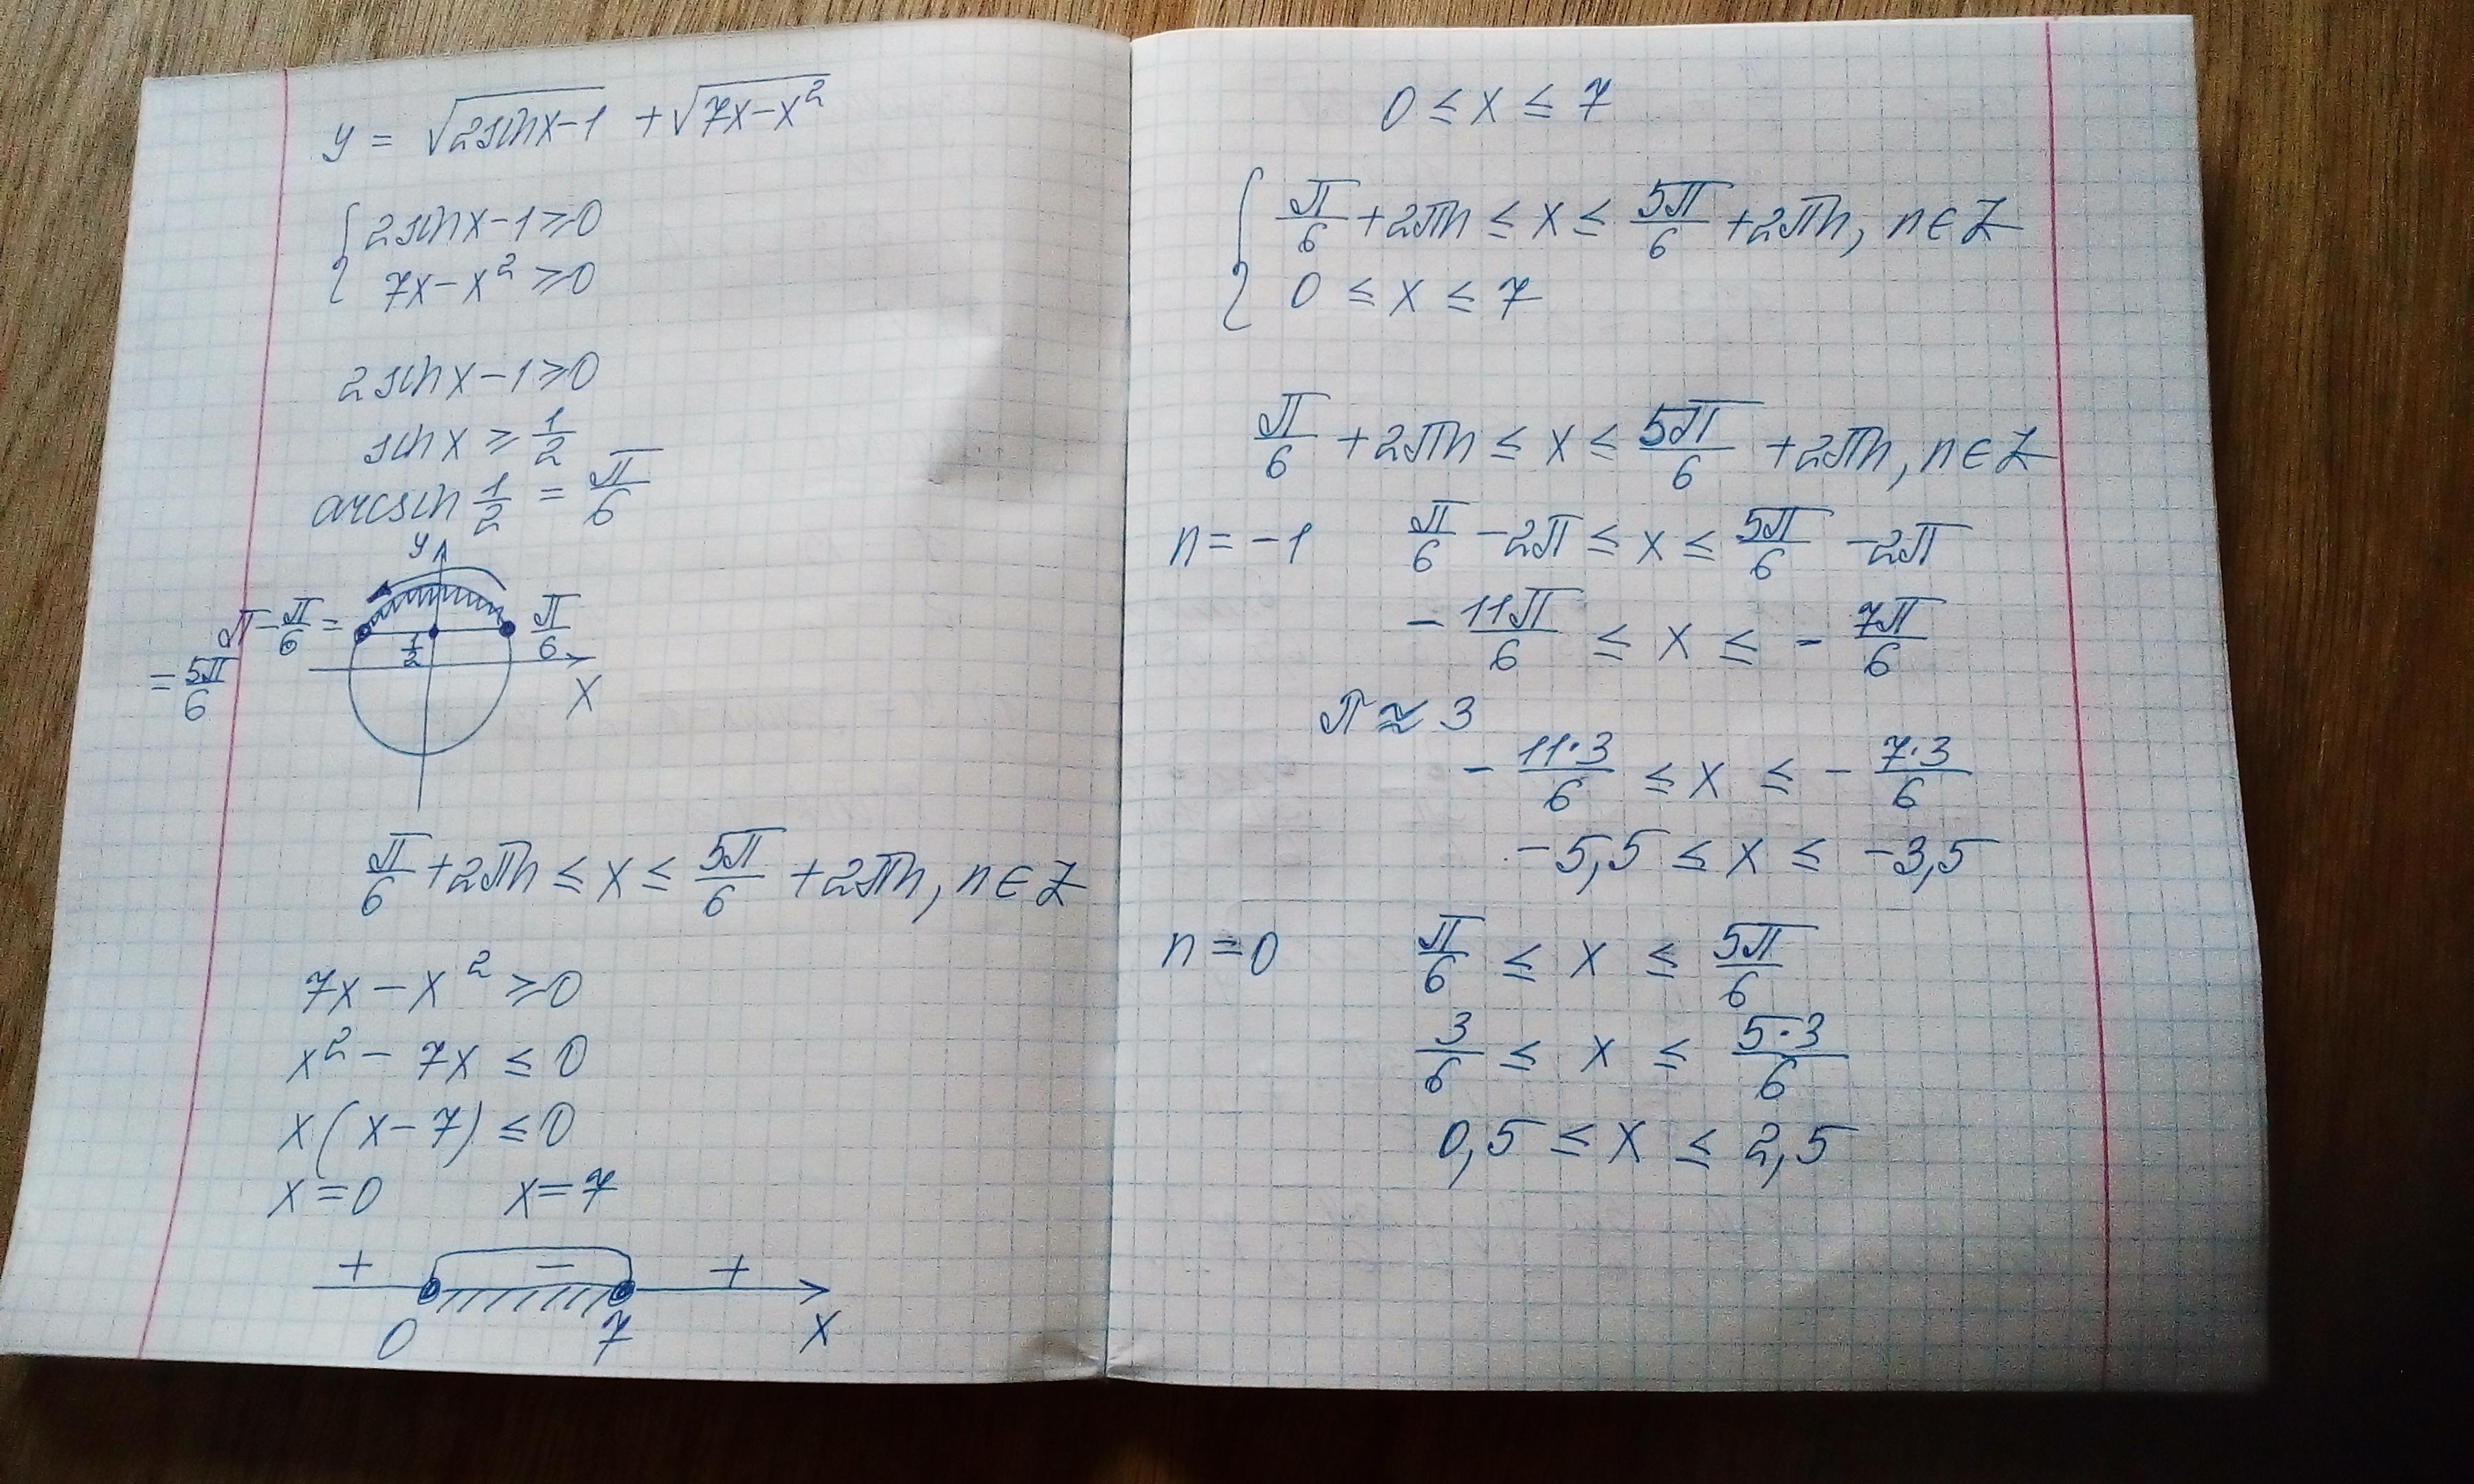 y = √(2sinx-1) + √(7x-x²)
{ 2sinx-1≥0
7x-x²≥0
2sinx-1≥0
sinx ≥ 1/2
arcsin 1/2 = π/6
y
π-π/6 =
= 5π/6
1/2
π/6
x
π/6 + 2πn ≤ x ≤ 5π/6 + 2πn, n∈Z
7x-x²≥0
x²-7x ≤ 0
x(x-7) ≤ 0
x=0 x=7
+ - +
0 7 x
0 ≤ x ≤ 7
{ π/6 + 2πn ≤ x ≤ 5π/6 + 2πn, n∈Z
0 ≤ x ≤ 7
π/6 + 2πn ≤ x ≤ 5π/6 + 2πn, n∈Z
n=-1 π/6 - 2π ≤ x ≤ 5π/6 - 2π
- 11π/6 ≤ x ≤ - 7π/6
π≈3
- 11·3/6 ≤ x ≤ - 7·3/6
-5,5 ≤ x ≤ -3,5
n=0 π/6 ≤ x ≤ 5π/6
3/6 ≤ x ≤ 5·3/6
0,5 ≤ x ≤ 2,5